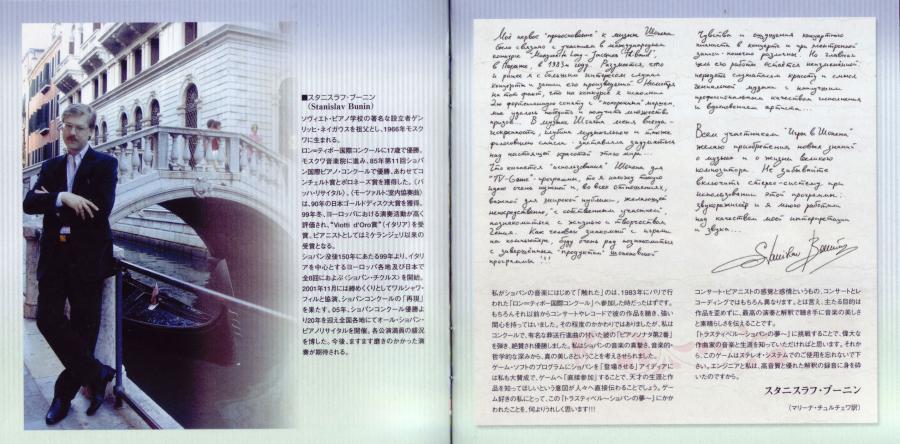 ■スタニスラフ・ブーニン
(Stanislav Bunin)
ソヴィエト・ピアノ学校の著名な設立者ゲン
リッヒ・ネイガウスを祖父とし、1966年モスク
ワに生まれる。
ロン=ティボー国際コンクールに17歳で優勝。
モスクワ音楽院に進み、85年第11回ショパ
ン国際ピアノ・コンクールで優勝、あわせてコ
ンチェルト賞とポロネーズ賞を獲得した。〈バ
ッハ・リサイタル〉、〈モーツァルト:室内協奏曲〉
は、90年の日本ゴールドディスク大賞を獲得。
99年冬、ヨーロッパにおける演奏活動が高く
評価され、"Viotti d'Oro賞"(イタリア)を受
賞。ピアニストとしてはミケランジェリ以来の
受賞となる。
ショパン没後150年にあたる99年より、イタリ
アを中心とするヨーロッパ各地及び日本で
全8回におよぶ〈ショパン・チクルス〉を開始。
2001年11月には締めくくりとしてワルシャワ・
フィルと協演、ショパンコンクールの「再現」を
果たす。05年、ショパンコンクール優勝よ
り20年を迎え全国各地にてオール・ショパン・
ピアノリサイタルを開催。各公演満員の盛況
を博した。今後、ますます磨きのかかった演
奏が期待される。
Моё первое "прикосновение" к музыке Шопена
было связано с участием в международном
конкурсе
в Париже, в 1983м году. Разумеется, что
и ранее я с большим интересом слушал
концерты и записи его произведений. Несмотря
на тот факт, что на конкурсе я исполнил
"похоронным" маршем,
В музыке Шопена меня всегда
искренность, глубина музыкального и
философского смысла - заставляли задуматься
над настоящей красотой этого мира...
Что касается "использования" Шопена для
"TV-Game" - программы, то я нахожу такую
идею очень нужной и, во всех отношениях,
важной для широкой публики, желающей
непосредственно, с "собственным участием",
познакомиться с жизнью и творчеством
гения. Как человек знакомый с играми
на компьютере, буду очень рад познакомиться
с завершённым "продуктом"
программы!!!
Чувства и ощущения концертного
пианиста в концерте и при электронной
записи - конечно различны. Но главная
цель его работы остаётся неизменной:
передать слушателям красоту и смысл
гениальной музыки с наилучшим
профессиональным качеством исполнения
и вдохновением артиста...
Всем участникам "Игры в Шопена"
желаю приобретения новых знаний
о музыке и о жизни великого
композитора. Не забывайте
включить стерео-систему при
использовании этой программы:
звукорежиссёр и я много работали
над качеством моей интерпретации
и звука...
Stanislav Bunin
私がショパンの音楽にはじめて「触れた」のは、1983年にパリで行
われた「ロン=ティボー国際コンクール」へ参加した時だったはずです。
もちろんそれ以前からコンサートやレコードで彼の作品を聴き、強い
関心を持ってはいました。その程度のかかわりではありましたが、私は
コンクールで、有名な葬送行進曲の付いた彼の「ピアノソナタ第2番」
を弾き、絶賛され優勝しました。私はショパンの音楽の真摯さ、音楽的・
哲学的な深みから、真の美しさということを考えさせられました。
ゲーム・ソフトのプログラムにショパンを「登場させる」アイディアに
は私も大賛成で、ゲームへ「直接参加」することで、天才の生涯と作
品を知ってほしいという意図が人々へ直接伝わることでしょう。ゲー
ム好きの私にとって、この「トラスティベル~ショパンの夢~」にかか
われたことを、何よりうれしく思います!!!
コンサート・ピアニストの感覚と感情というもの、コンサートとレ
コーディングではもちろん異なります。とは言え、主たる目的は
作品を歪めずに、最高の演奏と解釈で聴き手に音楽の美しさ
と素晴らしさを伝えることです。
「トラスティベル~ショパンの夢~」に挑戦することで、偉大な
作曲家の音楽と生涯を知っていただければと思います。それか
ら、このゲームはステレオ・システムでのご使用を忘れないで下
さい。エンジニアと私は、高音質と優れた解釈の録音に身を砕
いたのですから。
スタニスラフ・ブーニン
(マリーナ・チュルチェワ訳)